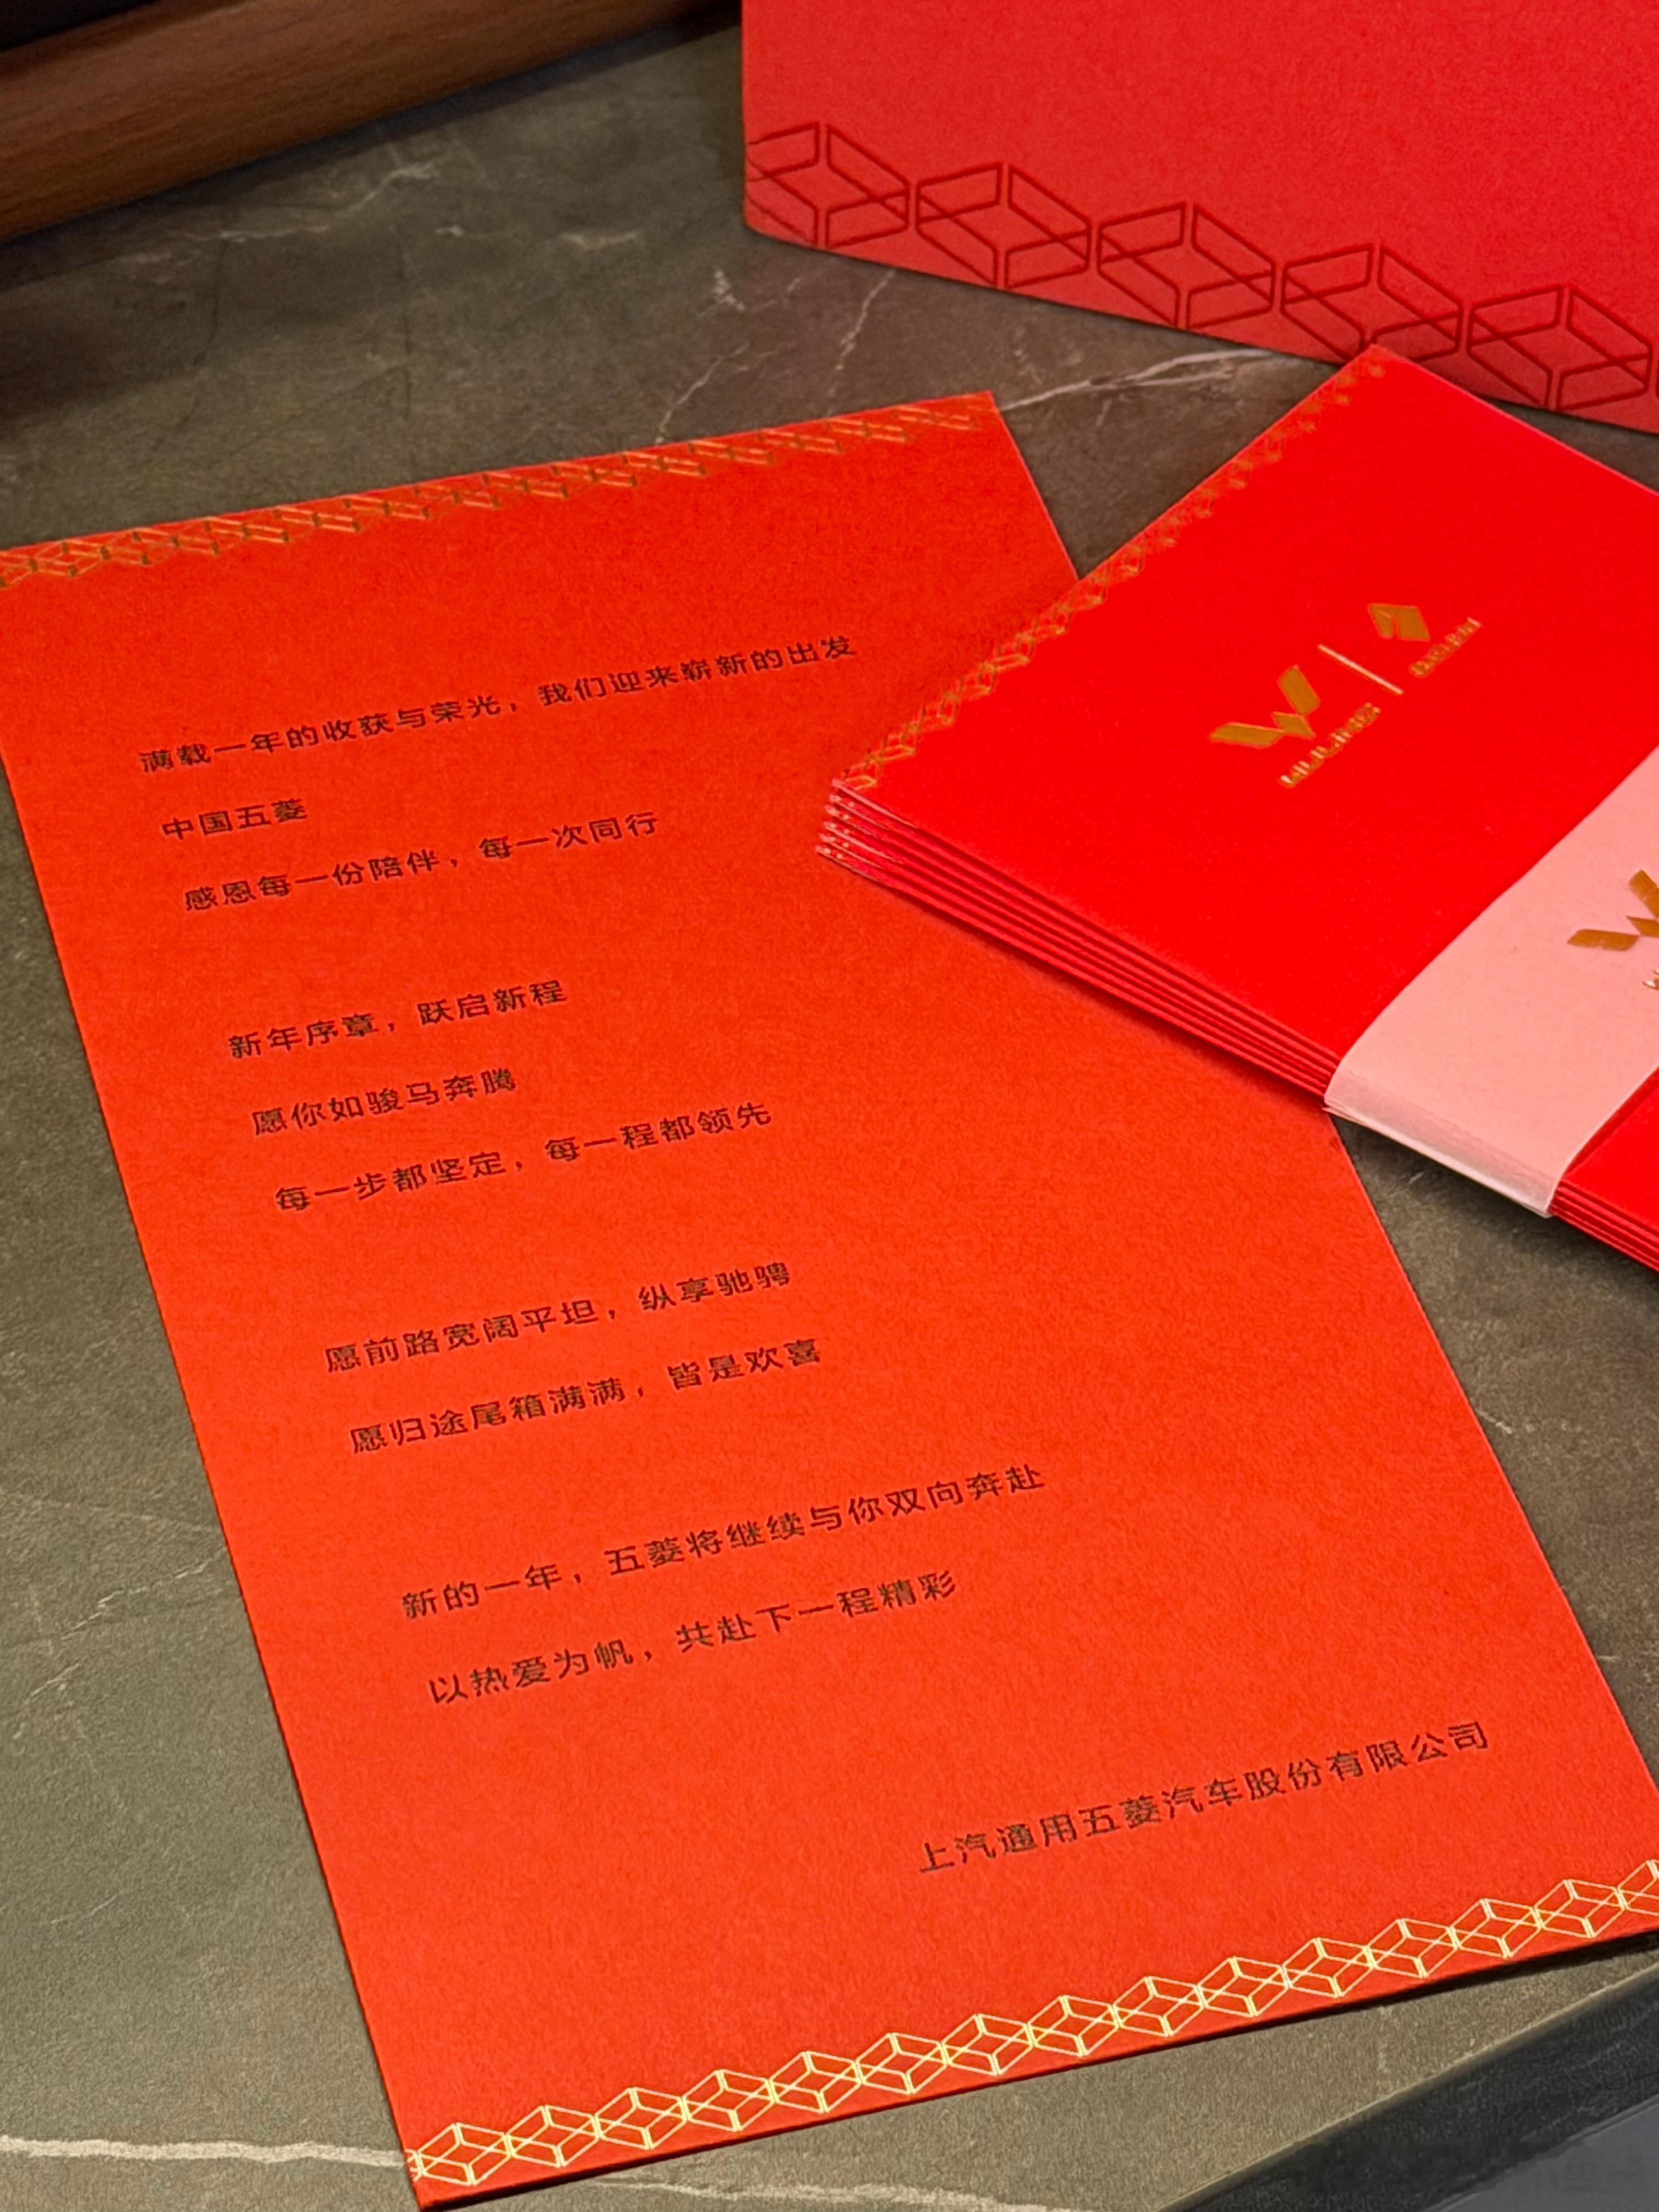 满载一年的收获与荣光，我们迎来崭新的出发
中国五菱
感恩每一份陪伴，每一次同行
新年序章，跃启新程
愿你如骏马奔腾
每一步都坚定，每一程都领先
愿前路宽阔平坦，纵享驰骋
愿归途尾箱满满，皆是欢喜
新的一年，五菱将继续与你双向奔赴
以热爱为帆，共赴下一程精彩
上汽通用五菱汽车股份有限公司